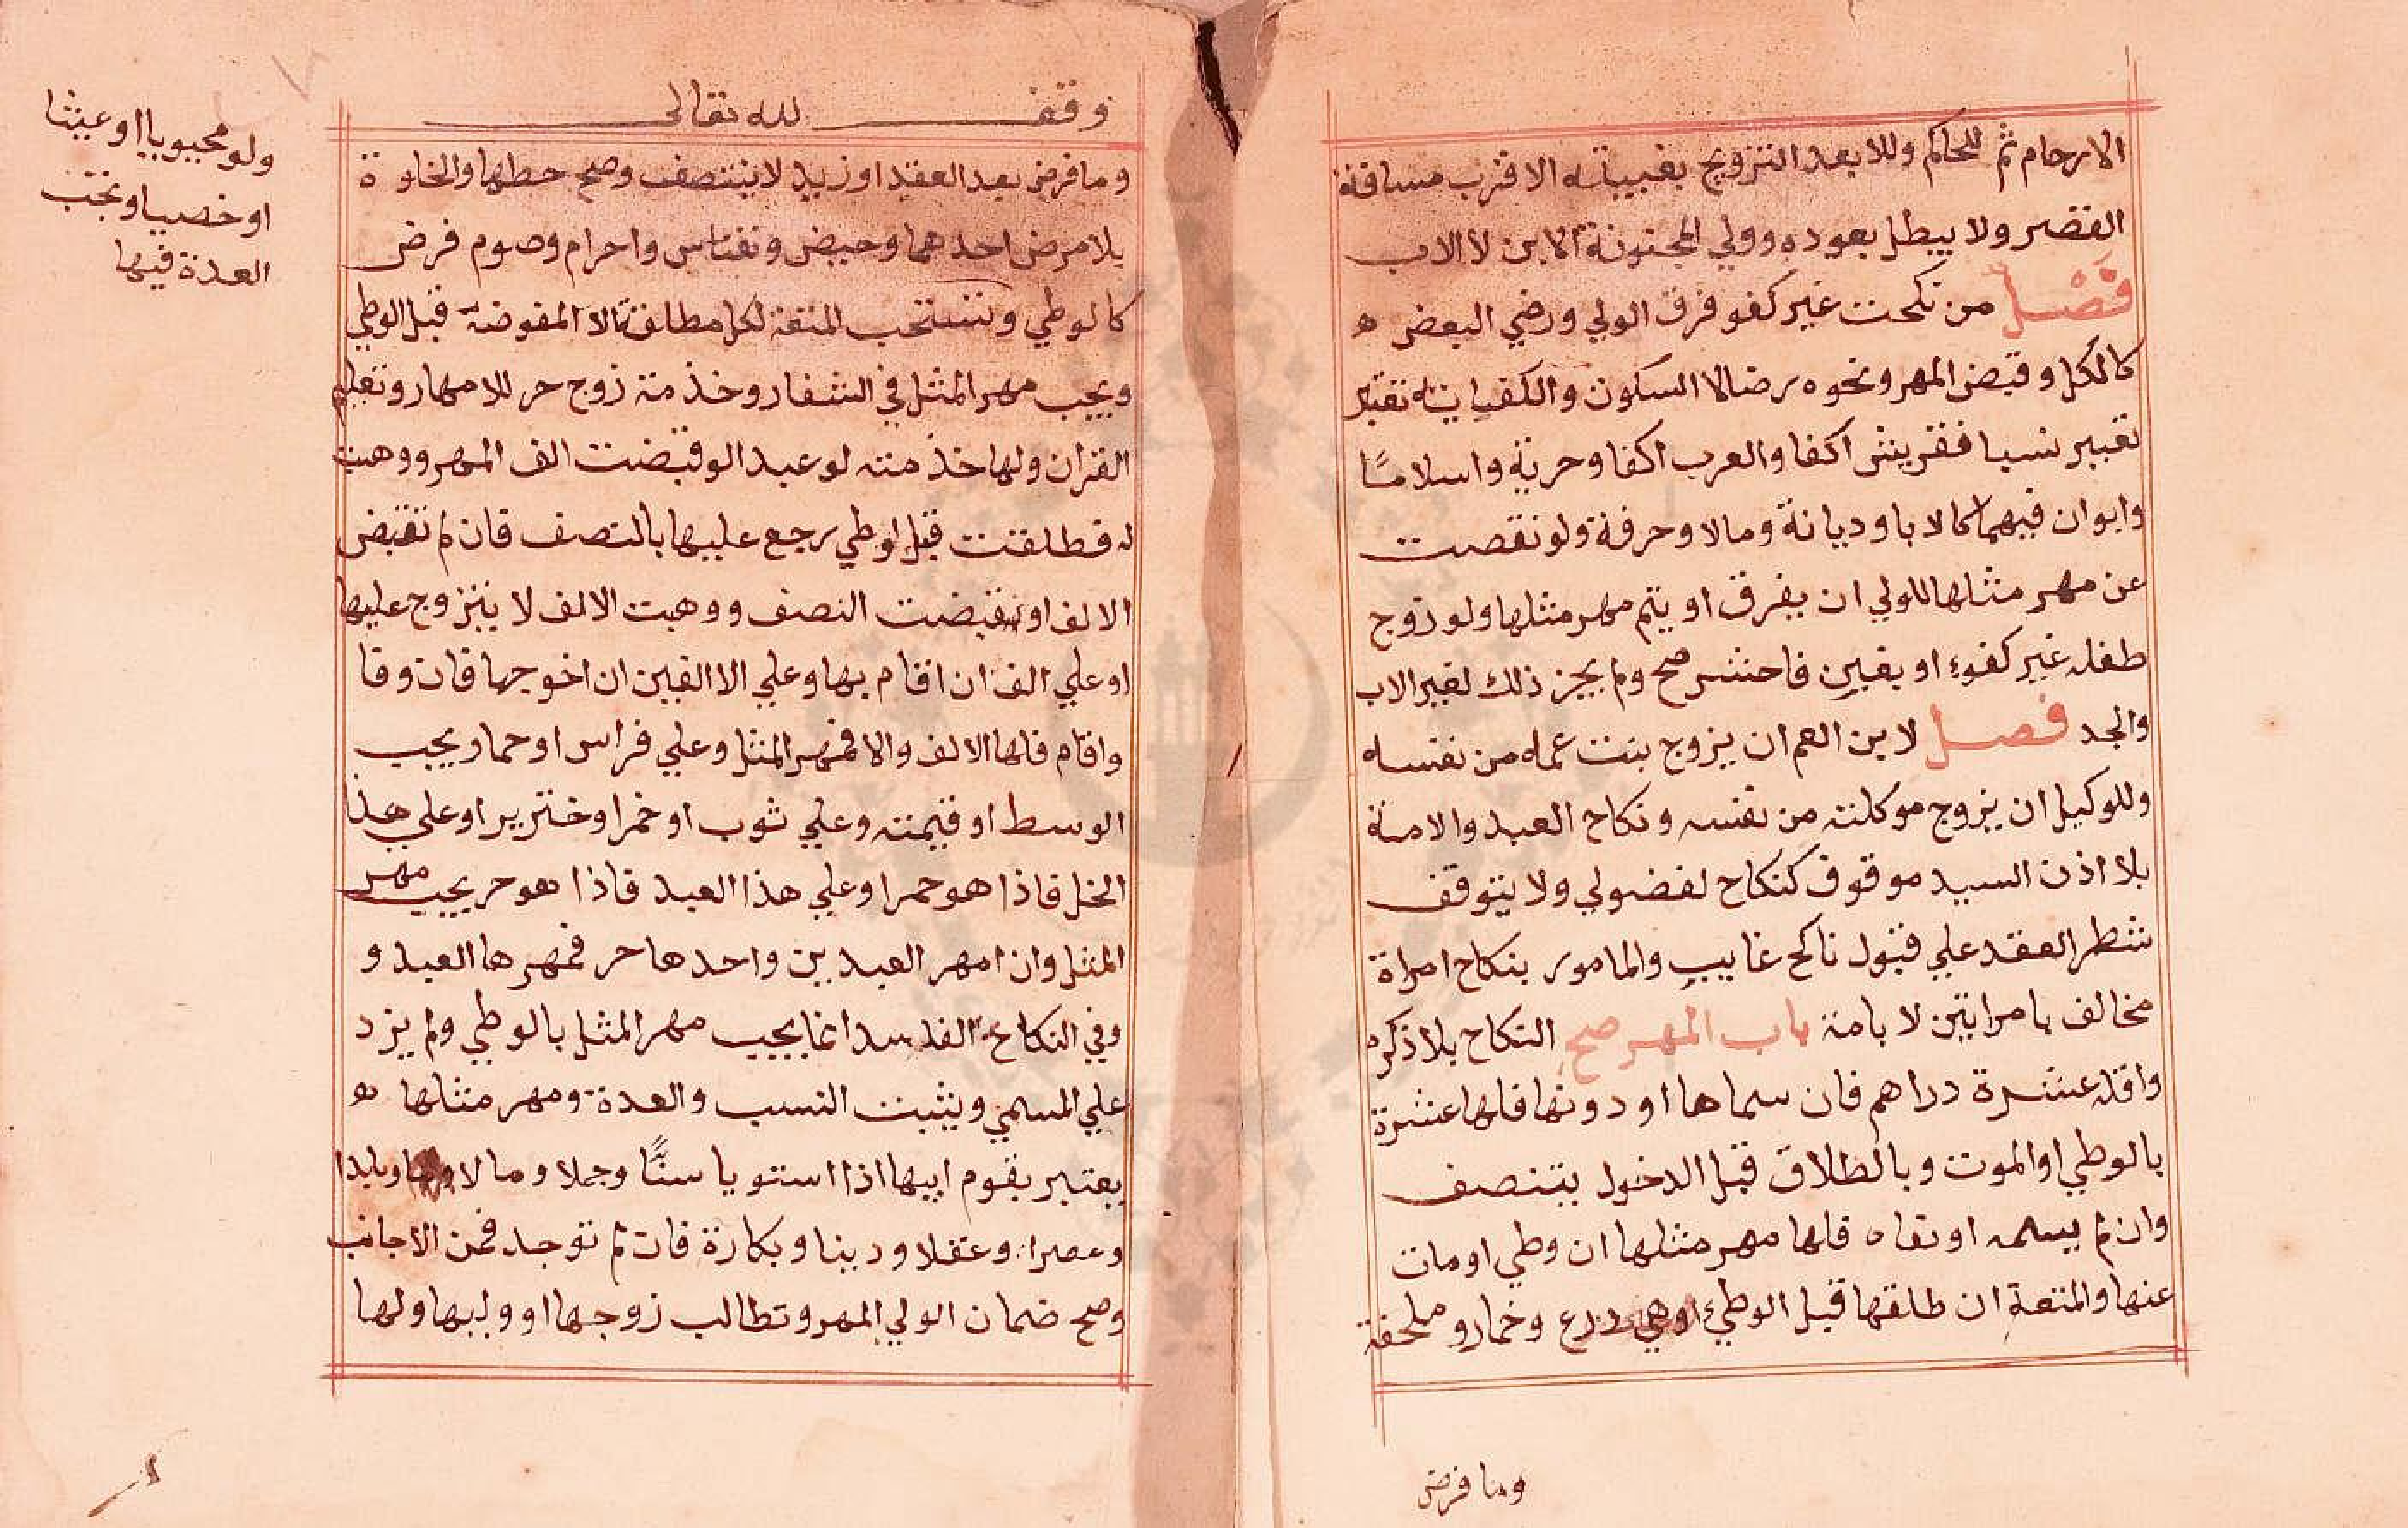 الارحام ثم للحاكم وللابعد التزويج بغيبته الاقرب مسافة
القصر ولا يبطل بعوده وولي المجنونة الابن لا الاب
فصل من نكحت غير كفو فرق الولي ورضي البعض ه
كالكل وقبض المهر ونحوه رضا لا السكوت والكفاية تعتبر
تعتبر نسبا فقريش اكفا والعرب اكفا وحرية واسلاما
وابوان فيهما كالابا وديانة ومالا وحرفة ولو نقصت
عن مهر مثلها للولي ان يفرق او يتم مهر مثلها ولو زوج
طفله غير كفوء او بغبن فاحش صح ولم يجز ذلك لغير الاب
والجد فصل لابن العم ان يزوج بنت عمه من نفسه
وللوكيل ان يزوج موكلته من نفسه ونكاح العبد والامة
بلا اذن السيد موقوف كنكاح لفضولي ولا يتوقف
شطر العقد علي قبول ناكح غايب والمامور بنكاح امراة
مخالف بامراتين لا بامة باب المهر صح النكاح بلا ذكره
واقله عشرة دراهم فان سماها او دونها فلها عشرة
بالوطي او الموت وبالطلاق قبل الدخول يتنصف
وان لم يسمه او نفاه فلها مهر مثلها ان وطي او مات
عنها والمتعة ان طلقها قبل الوطي وهي درع وخمار وملحفة
وما فرض
وقف لله تعالى
وما فرض بعد العقد او زيد لا يتنصف وصح حطها والخلوة
بلا مرض احدهما وحيض ونفاس واحرام وصوم فرض
كالوطي وتستحب المتعة لكل مطلقة الا المفوضة قبل الوطي
ويجب مهر المثل في الشغار وخدمة زوج حر للامهار وتعليم
القران ولها خدمته لو عبدا لو قبضت الف المهر ووهبت
له فطلقت قبل الوطي رجع عليها بالنصف فان لم تقبض
الالف او قبضت النصف ووهبت الالف لا يتزوج عليها
او علي الف ان اقام بها وعلي الالفين ان اخرجها فان وفا
واقام فلها الالف والا فمهر المثل وعلي فراس او حمار يجب
الوسط او قيمته وعلي ثوب او خمر او خنزير او علي هذا
الخل فاذا هو خمر او علي هذا العبد فاذا هو حر يجب مهر
المثل وان امهر العبدين واحدها حر فمهرها العبد و
وفي النكاح الفاسد انما يجب مهر المثل بالوطي ولم يزد
علي المسمي ويثبت النسب والعدة ومهر مثلها ه
يعتبر بقوم ابيها اذا استويا سنا وجملا ومالا وبلدا
وعصرا وعقلا ودينا وبكارة فان لم توجد فمن الاجانب
وصح ضمان الولي المهر وتطالب زوجها او وليها ولها
ولو مجبوبا او عنينا
او خصيا وتجب
العدة فيها